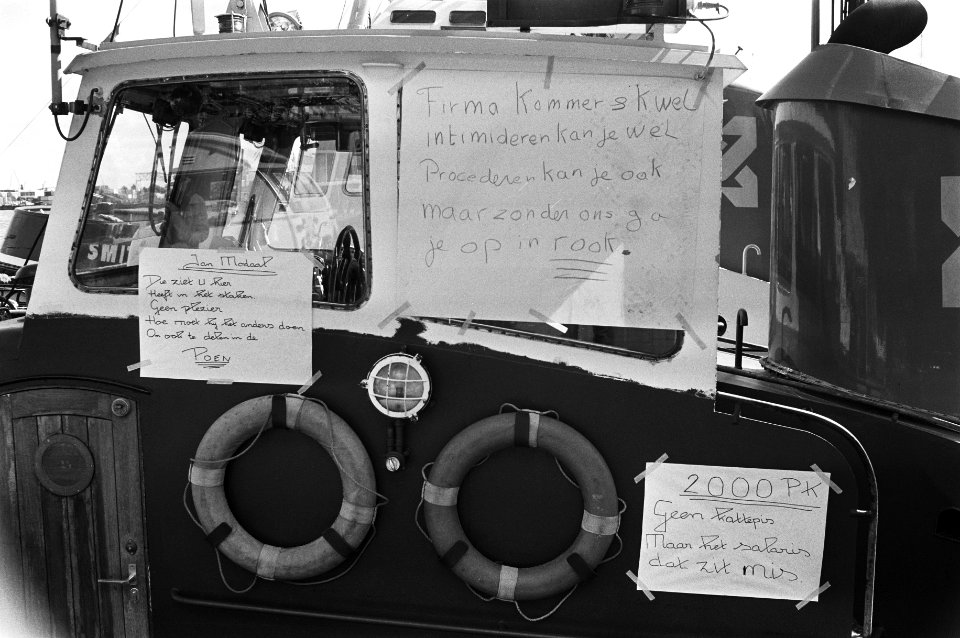 Firma Kommer s' Kwel
intimideren kan je wel
Procederen kan je ook
maar zonder ons ga
je op in rook.
SMIT
Jan Modaal
Die ziet U hier
Heeft in het staken.
Geen plezier
Hoe moet hij het anders doen
Om ook te delen in de
POEN
2000 PK
Geen kattepis
Maar het salaris
dat zit mis.